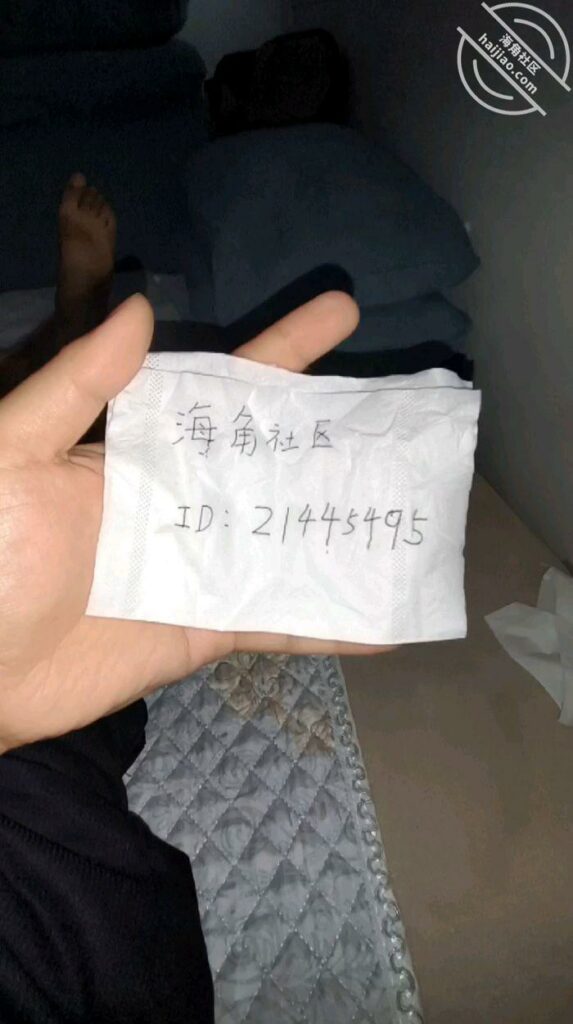 海角社区
haijiao.com
海角社区
ID: 21445495